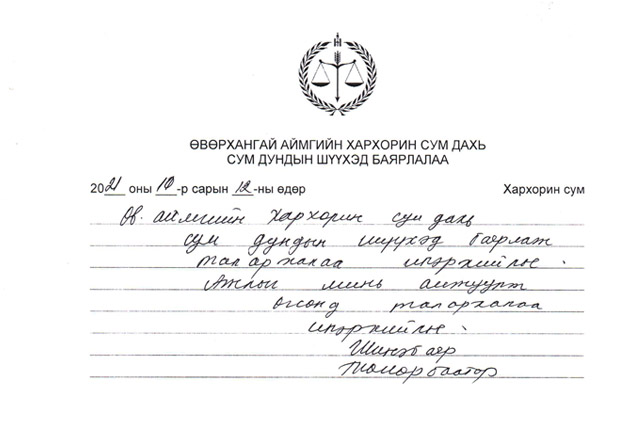 ӨВӨРХАНГАЙ АЙМГИЙН ХАРХОРИН СУМ ДАХЬ
СУМ ДУНДЫН ШҮҮХЭД БАЯРЛАЛАА
2021 оны 10-р сарын 12-ны өдөр Хархорин сум
Өв. аймгийн Хархорин сум дахь
сум дундын шүүхэд баярлаж
талархалаа илэрхийлье.
Ажлыг минь амжуулж
өгсөнд талархалаа
илэрхийлье.
Шинэбаяр
Төмөрбаатор